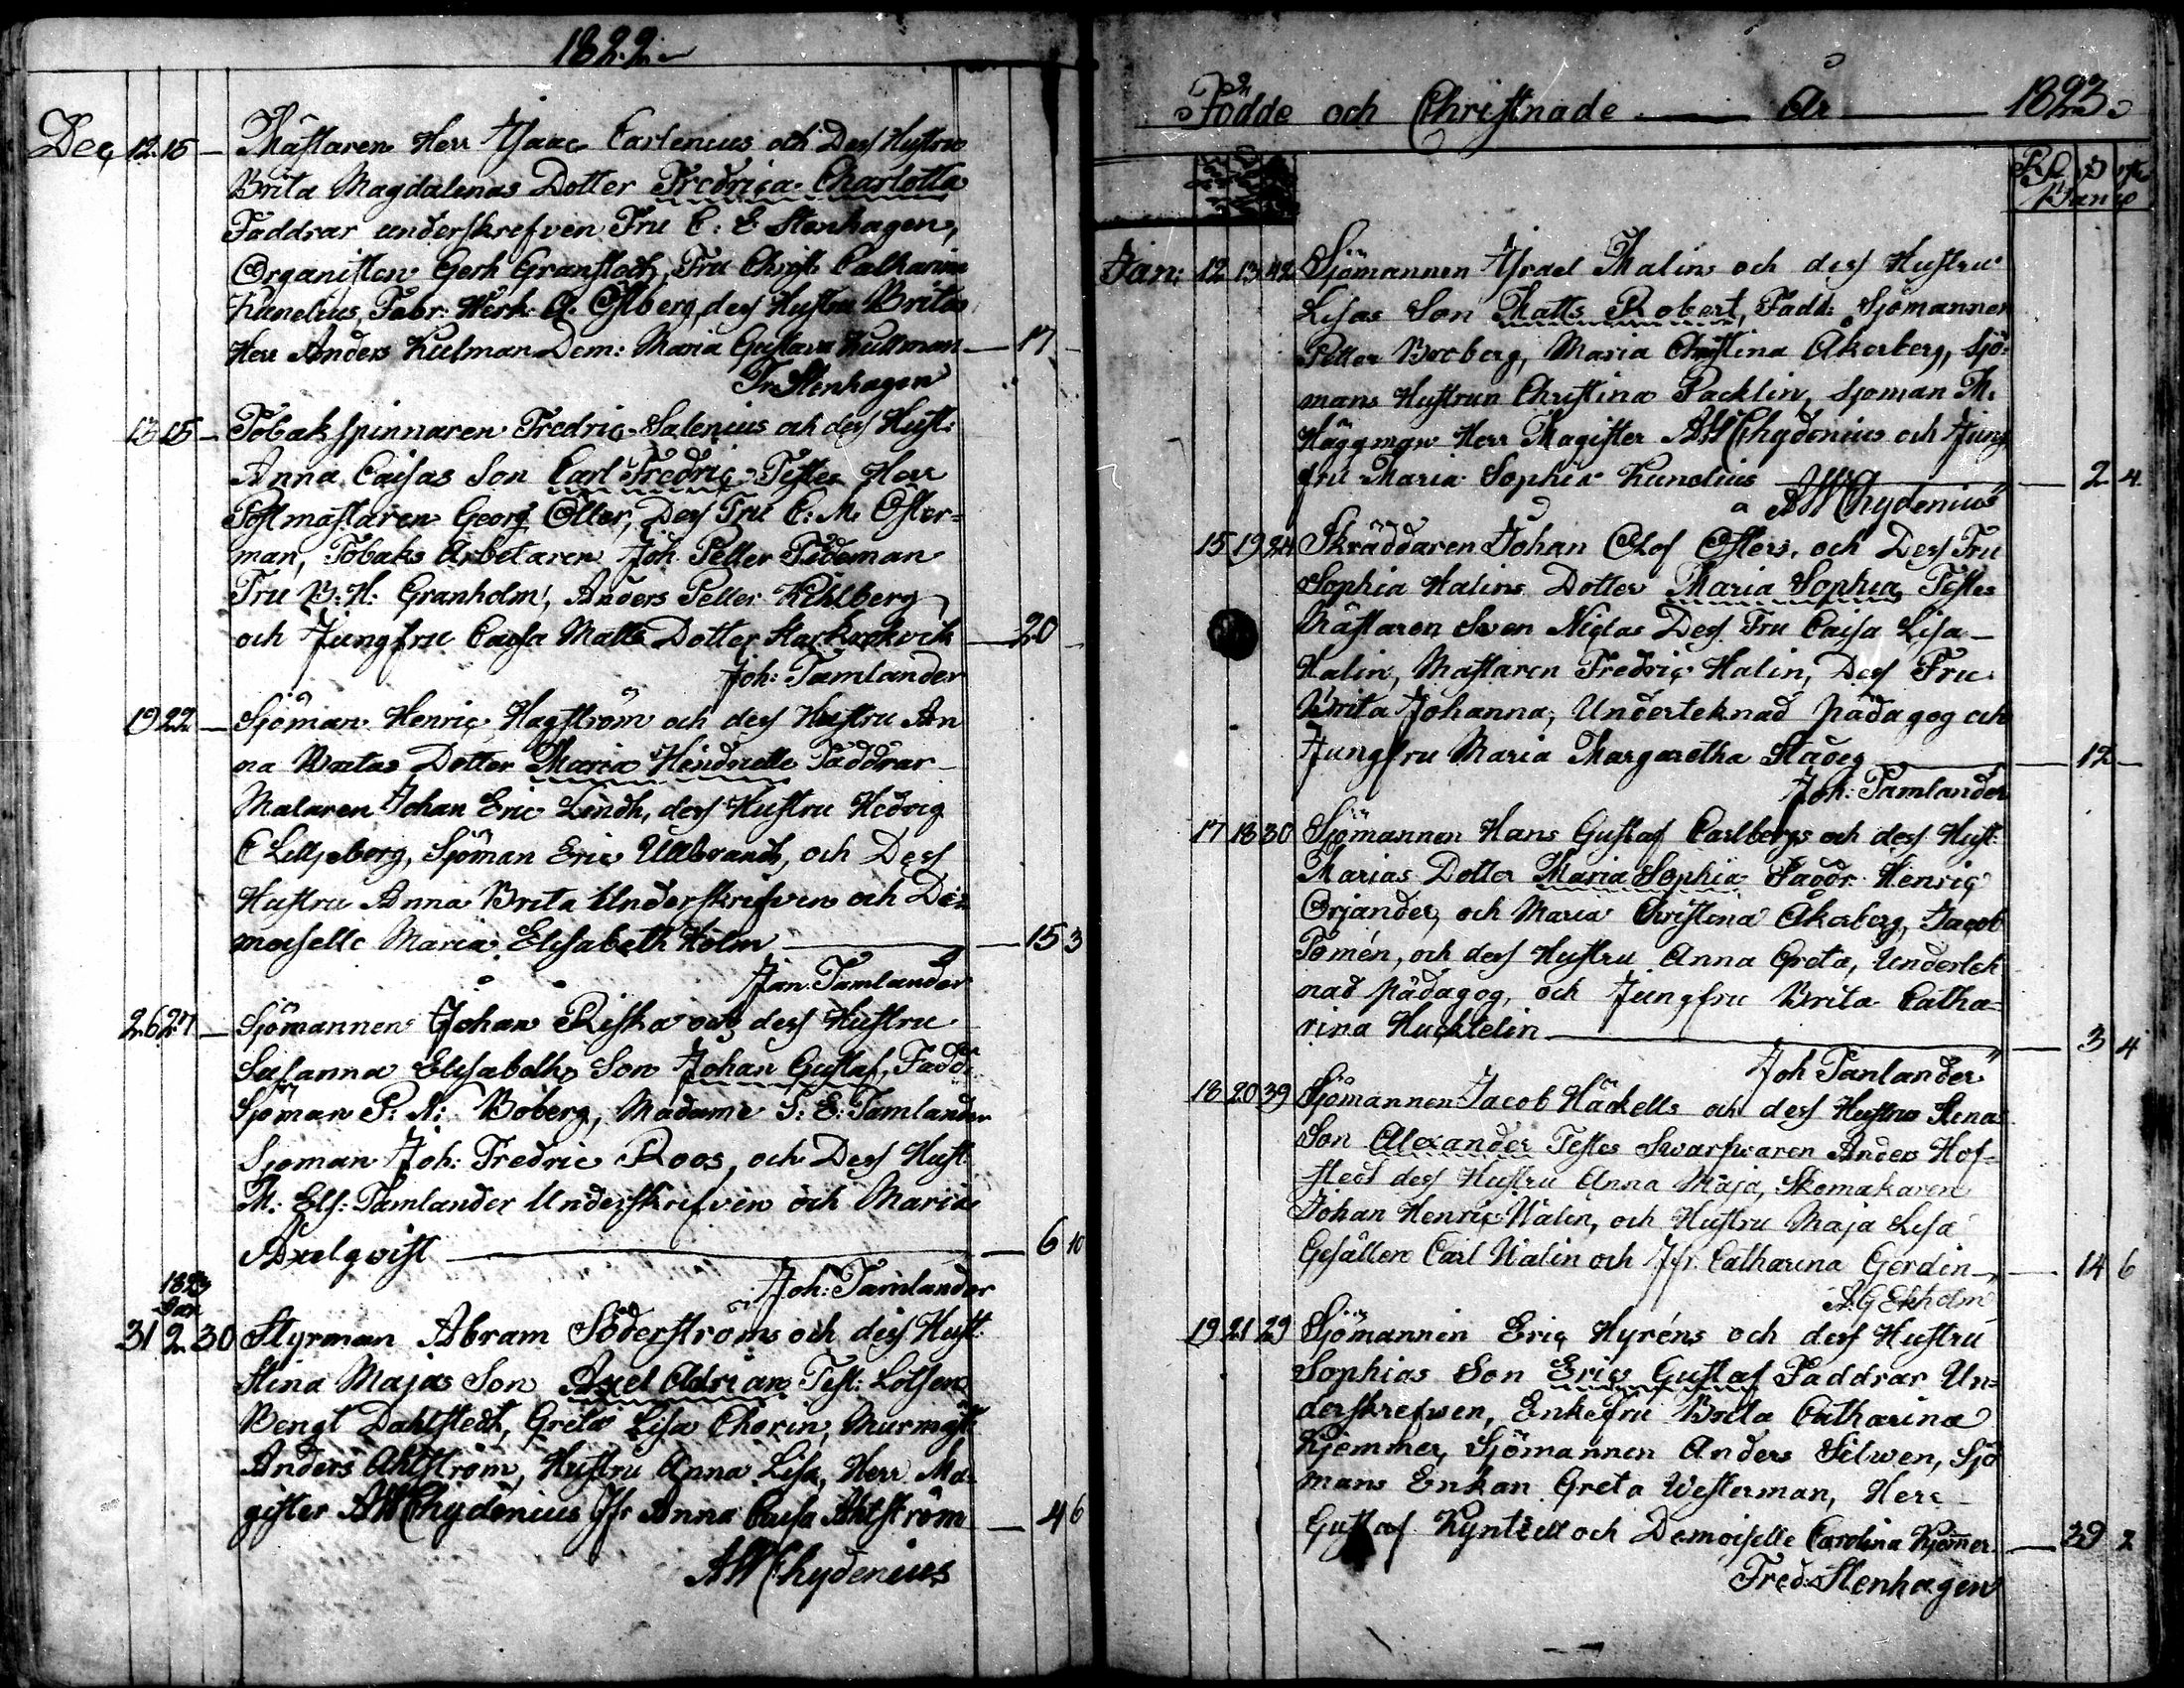 1822
Dec 12 15 Mästaren Herr Isaac Carlenius och Dess Hustru
Brita Magdalenas Dotter Fredrica Charlotta
Faddrar underskrefven Fru C: E Stenhagen,
Organisten Gerh Granstedt, Fru Christ Catharina
Kunelius, Fabr: Werk: A. Östberg, dess Hustru Brita
Herr Anders Kulman Dem: Maria Gustava Kullman — 17 —
Fr Stenhagen
13 15 — Tobakspinnaren Fredric Salenius och dess Hust:
Anna Caisas Son Carl Fredric Testes Herr
Postmästaren Georg Öller, Dess Fru C: M. Öster=
man, Tobaks Arbetaren Joh Petter Tideman
Fru B: H: Granholm, Anders Petter Kihlberg
och Jungfru Caisa Matts Dotter — 20 —
Joh: Tamlander
19 22 — Sjöman Henric Hagström och dess Hustru An
na Beatas Dotter Maria Faddrar
Målaren Johan Eric Lindh, dess Hustru Hedvig
C Lilljeberg, Sjöman Eric Ullbrandt, och Dess
Hustru Anna Brita Underskrifven och De=
moiselle Maria Elisabeth Holm — 15 3
Jon Tamlander
26 27 — Sjömannen Johan Riska och dess Hustru
Susanna Elisabeths Son Johan Gustaf, Fadd:
Sjöman P: N: Boberg, Madame S: E: Tamlander
Sjöman Joh: Fredric Roos, och Dess Hust
M: Els: Tamlander Underskrifven och Maria
Axelqvist — 6 10
Joh: Tamlander
1823
Jan
31 2 30 Styrman Abram Söderströms och dess Hust:
Stina Majas Son Axel Adrian Test: Lotsen
Bengt Dahlstedt, Greta Lisa Chorin, Murmäst:
Anders Ahlström, Hustru Anna Lisa, Herr Ma=
gister AWChydenius Jfr Anna Caisa Ahlström — 4 6
AWChydenius
Födde och Christnade — År — 1823
R S S rst
Banco
Jan: 12 13 42 Sjömannen Israel Malins och dess Hustru
Lisas Son Matts Robert, Fadd: Sjömannen
Petter Broberg, Maria Christina Åkerberg, Sjö=
mans Hustrun Christina Packlin, Sjöman M.
Häggman Herr Magister AWChydenius och Jung
fru Maria Sophia Kunelius — 2 4
AWChydenius
15 19 24 Skräddaren Johan Olof Östers, och Dess Fru
Sophia Halins Dotter Maria Sophia Testes
Mästaren Sven Niclas Dess Fru Caisa Lisa —
Halin, Mästaren Fredric Halin, Dess Fru
Brita Johanna, Undertecknad Pädagog och
Jungfru Maria Margaretha Stadig — 12 —
Joh: Tamlander
17 18 30 Sjömannen Hans Gustaf Carlbergs och dess Hust:
Marias Dotter Maria Sophia Faddr Henric
Orjander, och Maria Christina Åkerberg, Jacob
Tomén, och dess Hustru Anna Greta, Underteck
nad pädagog, och Jungfru Brita Catha=
rina Hucktelin — 3 4
Joh Tamlander
18 20 39 Sjömannen Jacob Häckells och dess Hustru Stenas
Son Alexander Testes Swarfwaren Anders Hof=
stedt dess Hustru Anna Maja, Skomakaren
Johan Henric Walin, och Hustru Maja Lisa
Gesällen Carl Walin och Jfr. Catharina Gerdin — 14 6
A.G Ekholm
19 21 29 Sjömannen Eric Hyréns och dess Hustru
Sophias Son Eric Gustaf Faddrar Un=
derskrefwen, Enkefru Brita Catharina
Kjemmer, Sjömannen Anders Silwen, Sjö
mans Enkan Greta Westerman, Herr
Gustaf Kyntzell och Demoiselle Carolina Kjemmer — 39 2
Fred: Stenhagen